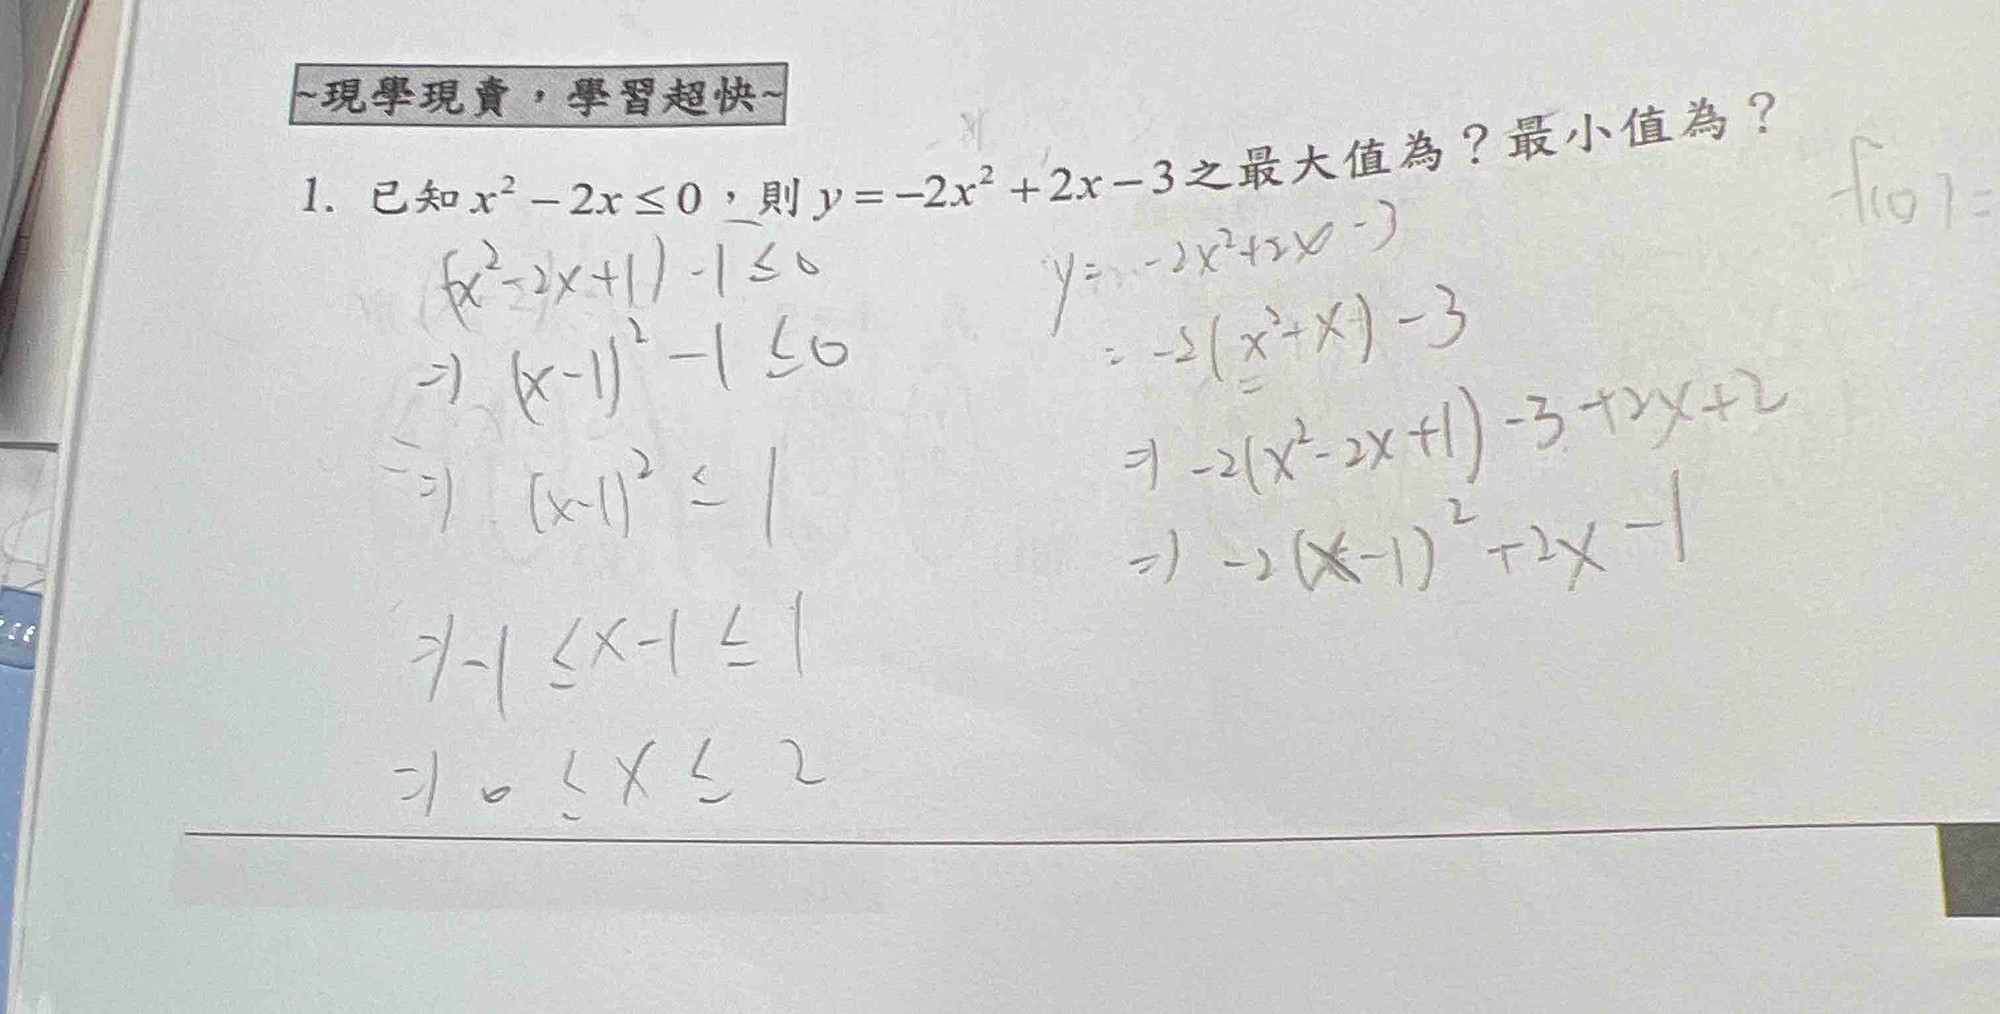 ~現學現賣，學習超快~
1. 已知 x² − 2x ≤ 0，則 y = −2x² + 2x − 3 之最大值為？最小值為？
(x²-2x+1) -1 ≤ 0
⇒ (x-1)² -1 ≤ 0
⇒ (x-1)² ≤ 1
⇒ -1 ≤ x-1 ≤ 1
⇒ 0 ≤ x ≤ 2
y = -2x²+2x -3
= -2(x²+x) -3
⇒ -2(x²-2x+1) -3 +2x+2
⇒ -2(x-1)² +2x -1
f(0) =